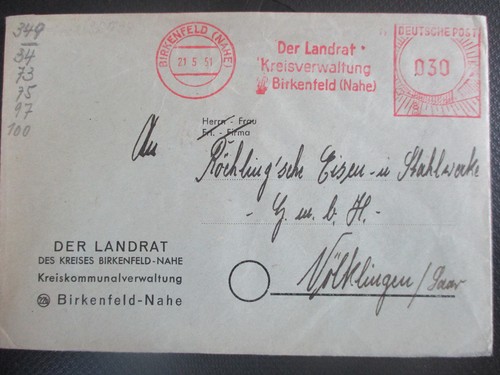 349
34
73
75
97
100
BIRKENFELD (NAHE)
21.5.51
Der Landrat
Kreisverwaltung
Birkenfeld (Nahe)
DEUTSCHE POST
030
Herrn - Frau
Frl. - Firma
An Röchling'sche Eisen- u Stahlwerke
G.m.b.H.-
Völklingen/Saar
DER LANDRAT
DES KREISES BIRKENFELD-NAHE
Kreiskommunalverwaltung
(22b) Birkenfeld-Nahe